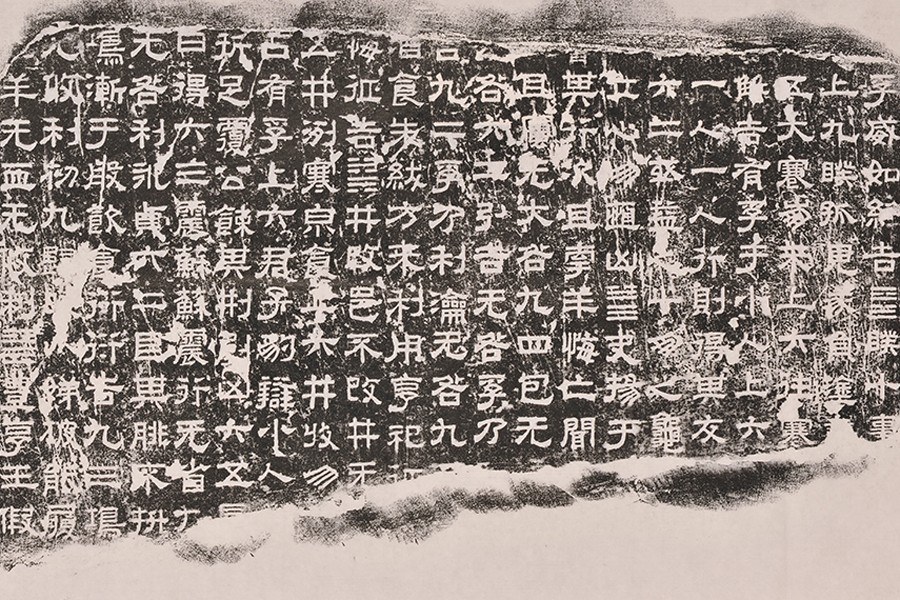 孚威如終吉䷥睽小事
上九睽孤見豕負塗
五大蹇朋來上六往蹇
解吉有孚于小人上六
一人一人行則得其友
六二或益之十朋之龜
立心勿恆凶䷪夬揚于
其行次且牽羊悔亡聞
且厲无大咎九四包无
咎六二引吉无咎孚乃
吉九二孚乃利瀹无咎九
食朱紱方來利用亨祀
悔征吉䷯井改邑不改井无
五井冽寒泉食上六井收勿
占有孚上六君子豹變小人
折足覆公餗其刑剭凶六五
曰得六三震蘇蘇震行无眚九
无咎利永貞六二艮其腓不抍
鴻漸于般飲食衎衎吉九三鴻
无攸利初九歸妹以娣跛能履
羊无血无攸利䷶豐亨王假